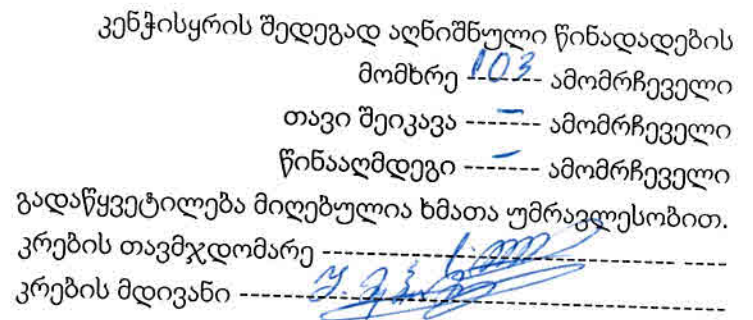 კენჭისყრის შედეგად აღნიშნული წინადადების
მომხრე 103 ამომრჩეველი
თავი შეიკავა — ამომრჩეველი
წინააღმდეგი — ამომრჩეველი
გადაწყვეტილება მიღებულია ხმათა უმრავლესობით.
კრების თავმჯდომარე
კრების მდივანი